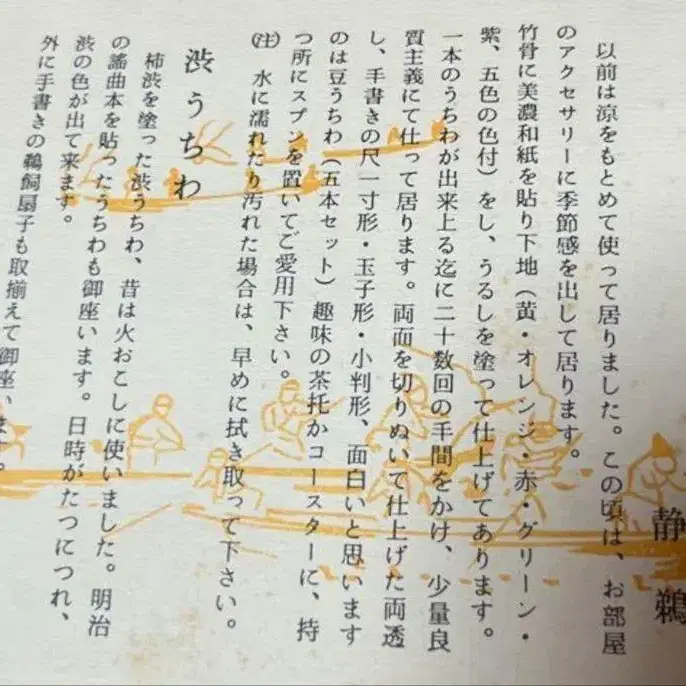 静
鵜
以前は涼をもとめて使って居りました。この頃は、お部屋
のアクセサリーに季節感を出して居ります。
竹骨に美濃和紙を貼り下地(黄・オレンジ・赤・グリーン・
紫、五色の色付)をし、うるしを塗って仕上げてあります。
一本のうちわが出来上る迄に二十数回の手間をかけ、少量良
質主義にて仕って居ります。両面を切りぬいて仕上げた両透
し、手書きの尺一寸形・玉子形・小判形、面白いと思います
のは豆うちわ(五本セット)趣味の茶托かコースターに、持
つ所にスプンを置いてご愛用下さい。
(注) 水に濡れたり汚れた場合は、早めに拭き取って下さい。
渋うちわ
柿渋を塗った渋うちわ、昔は火おこしに使いました。明治
の謡曲本を貼ったうちわも御座います。日時がたつにつれ、
渋の色が出て来ます。
外に手書きの鵜飼扇子も取揃えて御座います。